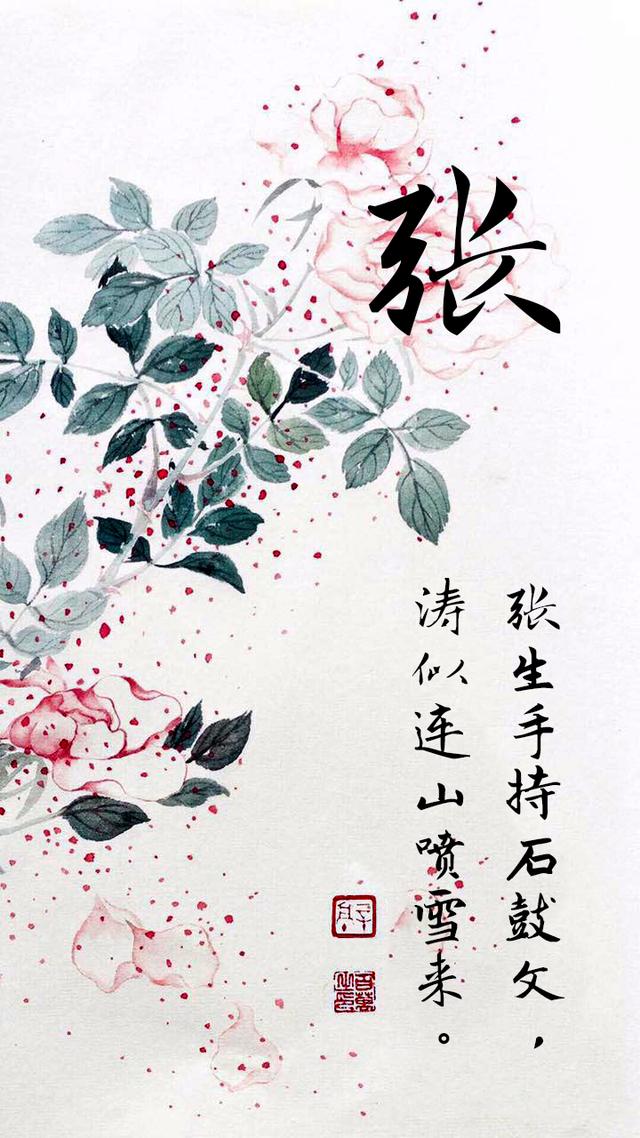 张
张生手持石鼓文，
涛似连山喷雪来。